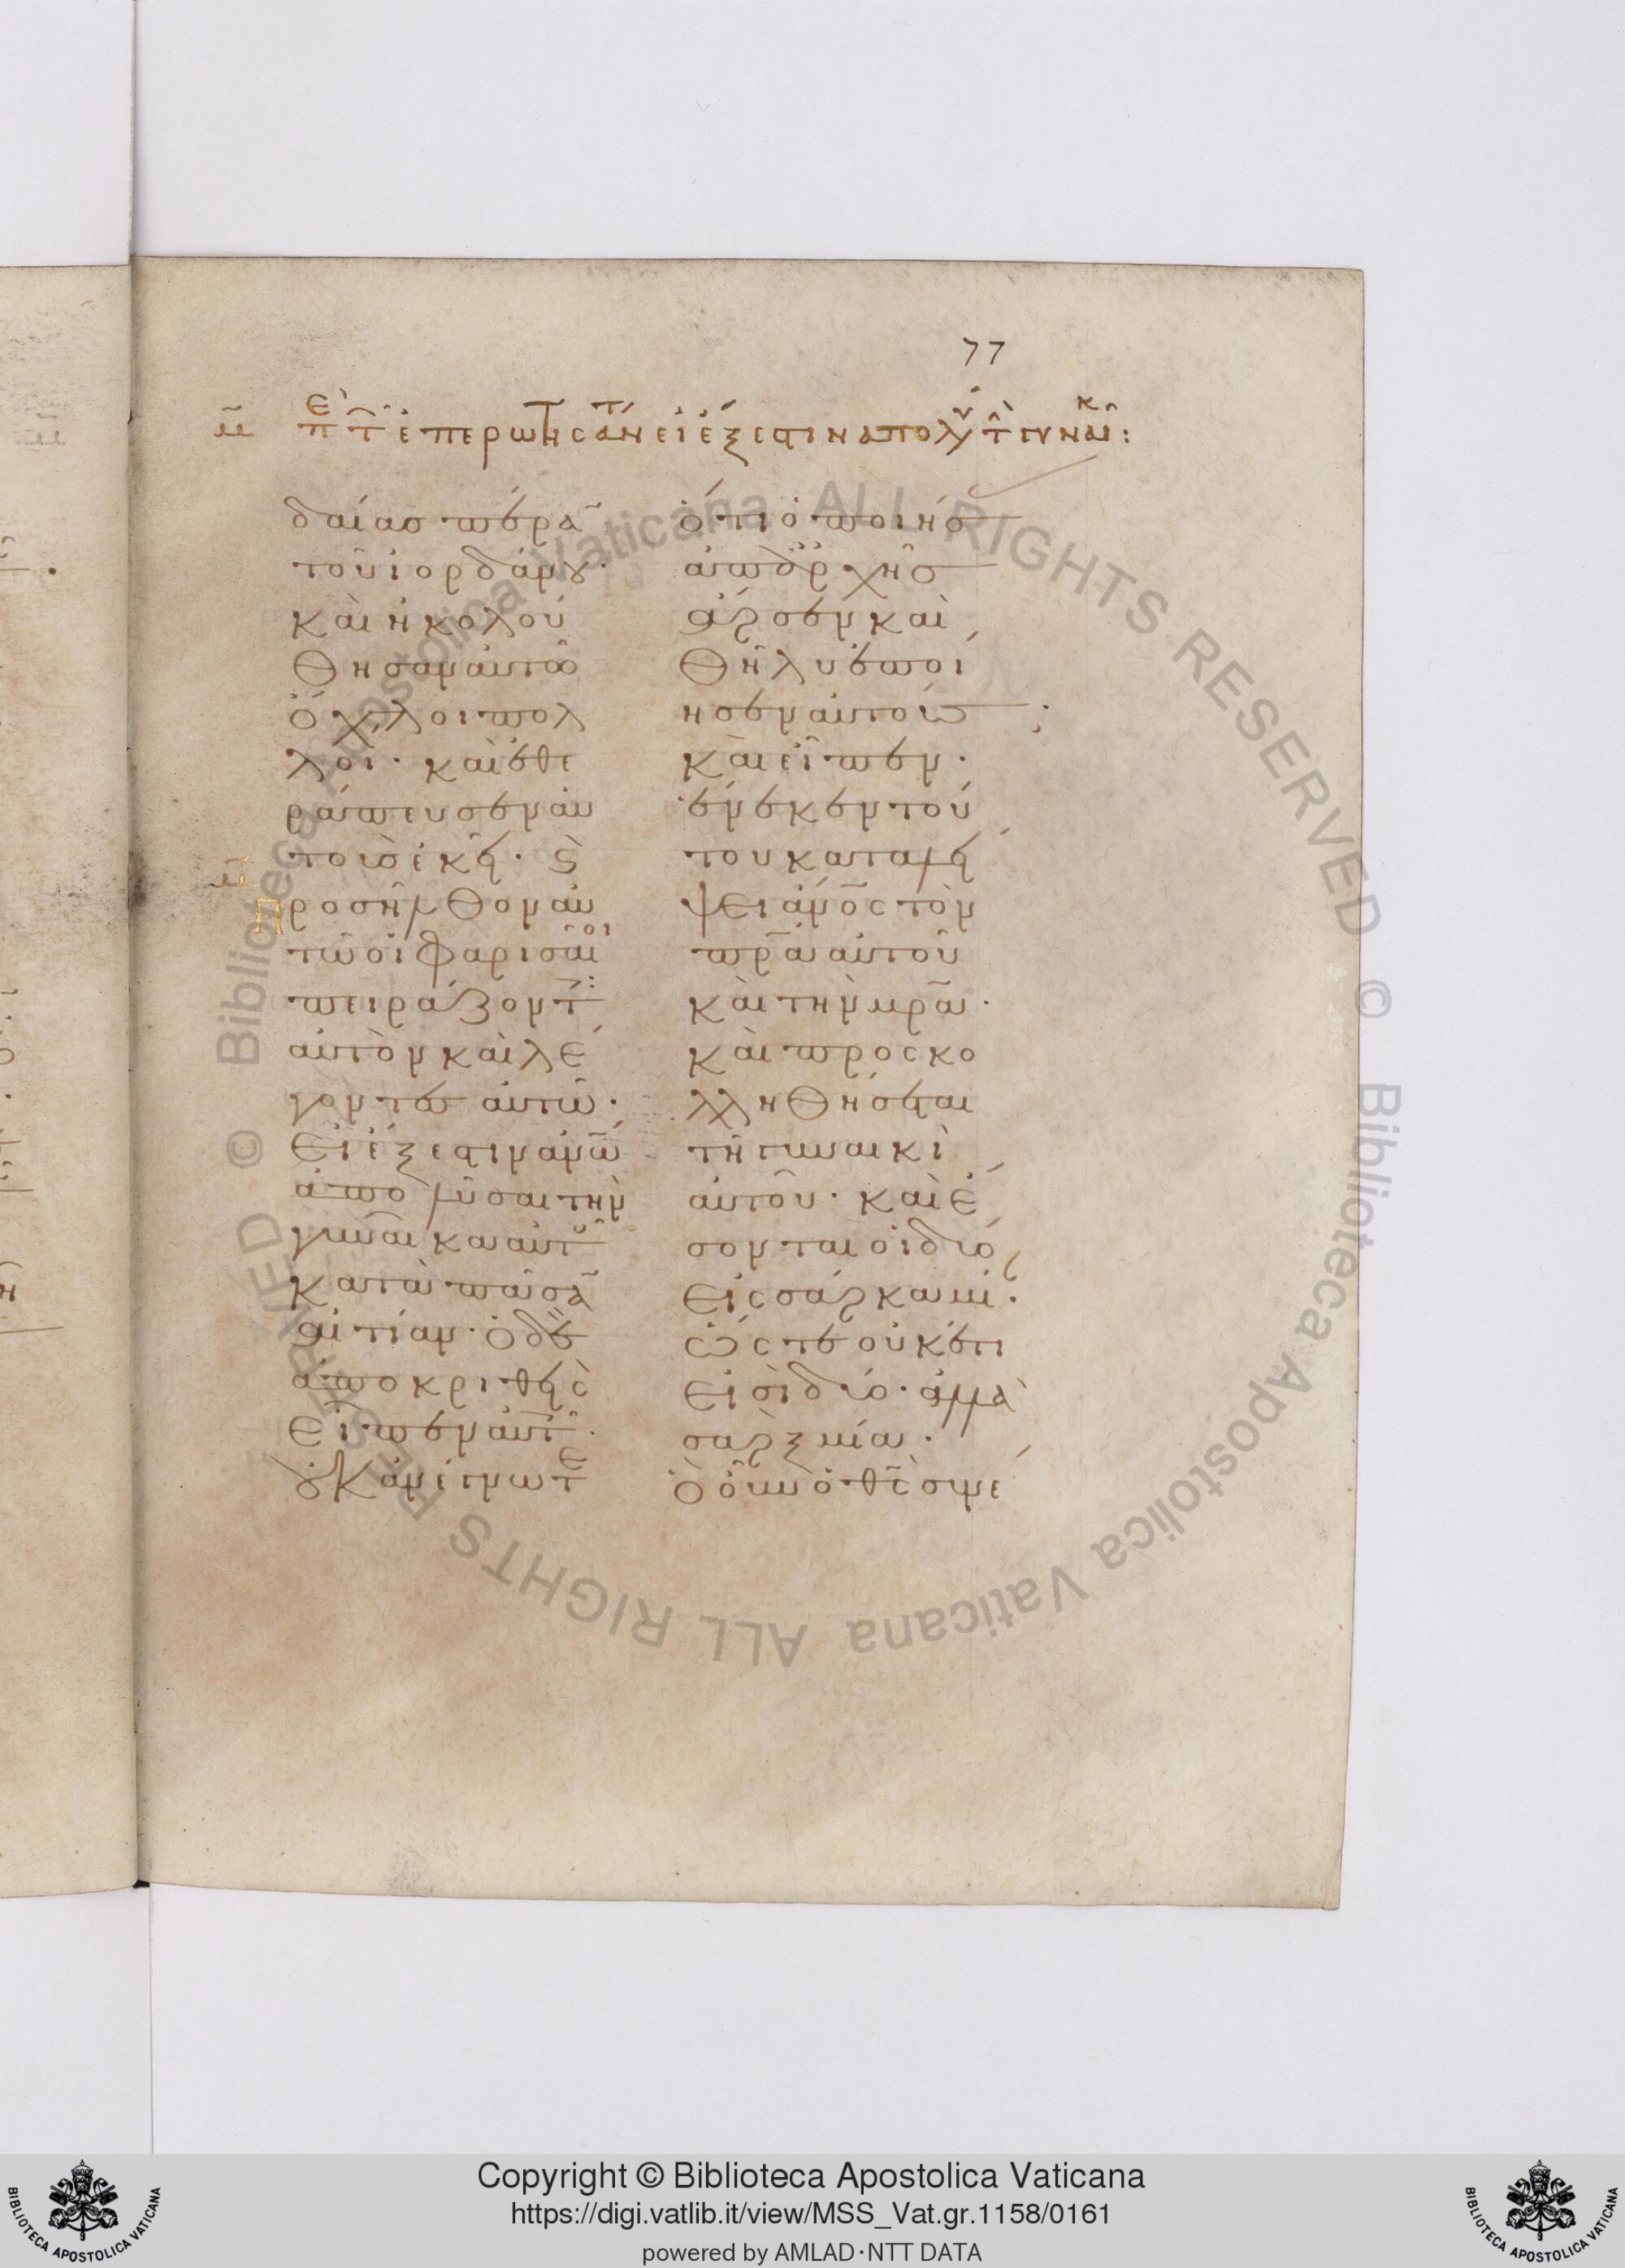 77
μ̅ πὲ τ̅ ἐπερωτησάντ εἰ ἔξεστιν ἀπολῦ τ̀ γυναῖκ:
δαίας πέρα̅
τοῦ ἰορδάνου·
καὶ ἠκολού
θησαν αὐτῶ
ὄχλοι πολ
λοι· καὶ ἐθε
ράπευσεν αὐ
τοὺς ἐκεῖ· Καὶ
προσῆλθον αὐ
τῶ οἱ φαρισαῖοι
πειράζοντ̅
αὐτὸν καὶ λέ
γοντες αὐτῶ·
Εἰ ἔξεστιν ἀν̅ω
ἀπολῦσαι τὴν
γυναῖκα αὐτοῦ
κατὰ πᾶσα̅
αἰτίαν· Ὁ δὲ
ἀποκριθεὶς
εἶπεν αὐτ̅·
οὐκ ἀνέγνωτε
ὅτι ὁ ποιήσ
ἀπαρχῆς
ἄρσεν καὶ
θῆλυ ἐποί
ησεν αὐτούς;
καὶ εἶπεν·
ἕνεκεν τού
του καταλεί
ψει α̅ν̅ο̅ς τὸν
π̅ρ̅α̅ αὐτοῦ
καὶ τὴν μ̅ρ̅α̅·
καὶ προσκο
λληθήσεται
τῆ γυναικὶ
αὐτοῦ· καὶ ἔ
σονται οἱ δύο
εἰς σάρκα μί·
ὥστε οὐκέτι
εἰσὶ δύο· ἀλλὰ
σαρξ μία·
Ὃ οὖν ὁ θ̅ς̅ συνέ
Copyright © Biblioteca Apostolica Vaticana
https://digi.vatlib.it/view/MSS_Vat.gr.1158/0161
powered by AMLAD·NTT DATA
BIBLIOTECA APOSTOLICA VATICANA
BIBLIOTECA APOSTOLICA VATICANA
© Biblioteca Apostolica Vaticana ALL RIGHTS RESERVED © Biblioteca Apostolica Vaticana ALL RIGHTS RESERVED